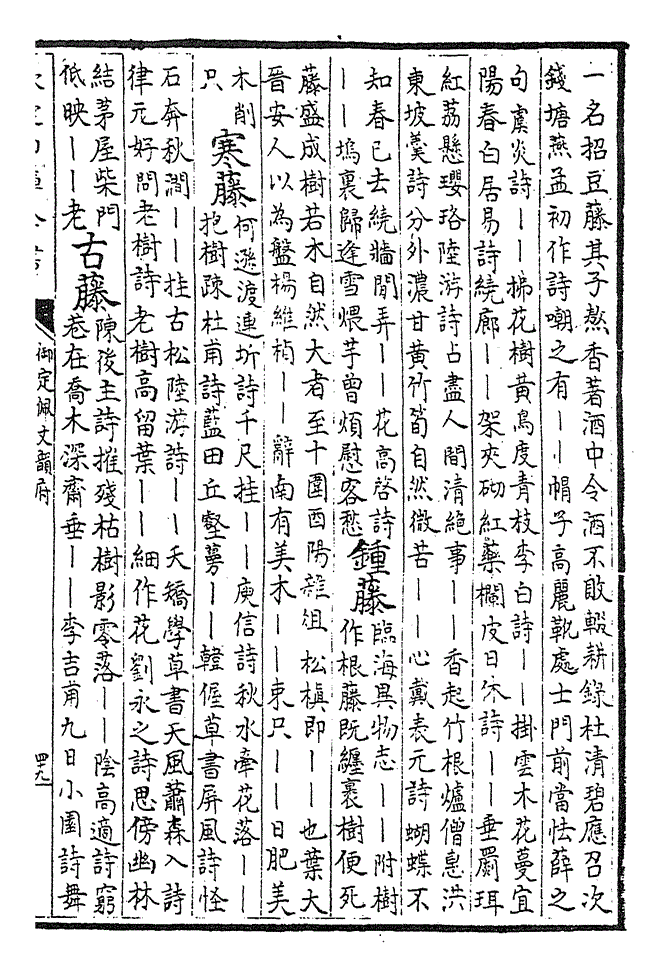 一名招豆藤其子熬香著酒中令酒不敗輟耕錄杜清碧應召次
錢塘燕孟初作詩嘲之有丨丨帽子高麗靴處士門前當怯薛之
句虞炎詩丨丨拂花樹黃鳥度青枝李白詩丨丨掛雲木花蔓宜
陽春白居易詩繞廊丨丨架夾砌紅藥欄皮日休詩丨丨垂罽珥
紅荔懸瓔珞陸游詩占盡人間清絕事丨丨香起竹根爐僧惠洪
東坡羹詩分外濃甘黃竹筍自然微苦丨丨心戴表元詩蝴蝶不
知春已去繞牆閒弄丨丨花高啓詩
丨丨塢裏歸逢雪煨芋曾煩慰客愁
鍾藤
臨海異物志丨丨附樹
作根藤既纏裹樹便死
藤盛成樹若木自然大者至十圍酉陽雜俎松楨即丨丨也葉大
晉安人以為盤楊維楨丨丨辭南有美木丨丨束只丨丨日肥美
木削
只
寒藤
何遜渡連圻詩千尺挂丨丨庾信詩秋水牽花落丨丨
抱樹疎杜甫詩藍田丘壑蔓丨丨韓偓草書屏風詩怪
石奔秋澗丨丨挂古松陸游詩丨丨夭矯學草書天風蕭森入詩
律元好問老樹詩老樹高留葉丨丨細作花劉永之詩思傍幽林
結茅屋柴門
低映丨丨老
古藤
陳後主詩摧殘枯樹影零落丨丨陰高適詩窮
巷在喬木深齋垂丨丨李吉甫九日小園詩舞
御定佩文韻府
四九